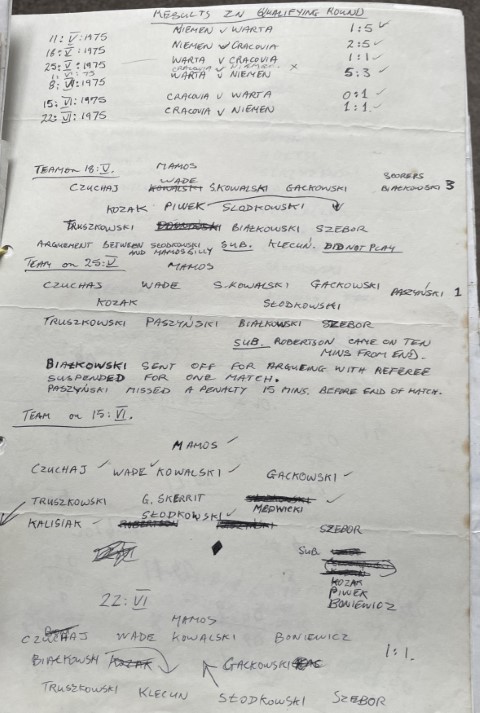 RESULTS IN QUALIFYING ROUND
11:V:1975 NIEMEN v WARTA 1:5 ✓
18:V:1975 NIEMEN v CRACOVIA 2:5 ✓
25:V:1975 WARTA v CRACOVIA 1:1 ✓
1:VI:75 CRACOVIA v NIEMEN x
8:VI:1975 WARTA v NIEMEN 5:3 ✓
15:VI:1975 CRACOVIA v WARTA 0:1 ✓
22:VI:1975 CRACOVIA v NIEMEN 1:1 ✓
TEAM ON 18:V. MAMOS
CZUCHAJ WADE KOWALSKI S.KOWALSKI GACKOWSKI SCORERS BIAŁKOWSKI 3
KOZAK PIWEK SŁODKOWSKI
TRUSZKOWSKI BIAŁKOWSKI SZEBOR
ARGUMENT BETWEEN SŁODKOWSKI AND MAMOS SUB. KLECUN. DID NOT PLAY
TEAM ON 25:V MAMOS
CZUCHAJ WADE S.KOWALSKI GACKOWSKI PASZYŃSKI 1
KOZAK SŁODKOWSKI
TRUSZKOWSKI PASZYŃSKI BIAŁKOWSKI SZEBOR
SUB. ROBERTSON CAME ON TEN
MINS FROM END.
BIAŁKOWSKI SENT OFF FOR ARGUEING WITH REFEREE
SUSPENDED FOR ONE MATCH.
PASZYŃSKI MISSED A PENALTY 15 MINS. BEFORE END OF MATCH.
TEAM on 15:VI.
MAMOS ✓
CZUCHAJ ✓ WADE ✓ KOWALSKI ✓ GACKOWSKI ✓
TRUSZKOWSKI G. SKERRIT MEDWICKI ✓
KALISIAK ✓ ROBERTSON SŁODKOWSKI ✓ SZEBOR
SUB.
KOZAK
PIWEK
BONIEWICZ
22:VI
MAMOS
CZUCHAJ WADE KOWALSKI BONIEWICZ
BIAŁKOWSKI KOZAK GACKOWSKI 1:1.
TRUSZKOWSKI KLECUN SŁODKOWSKI SZEBOR